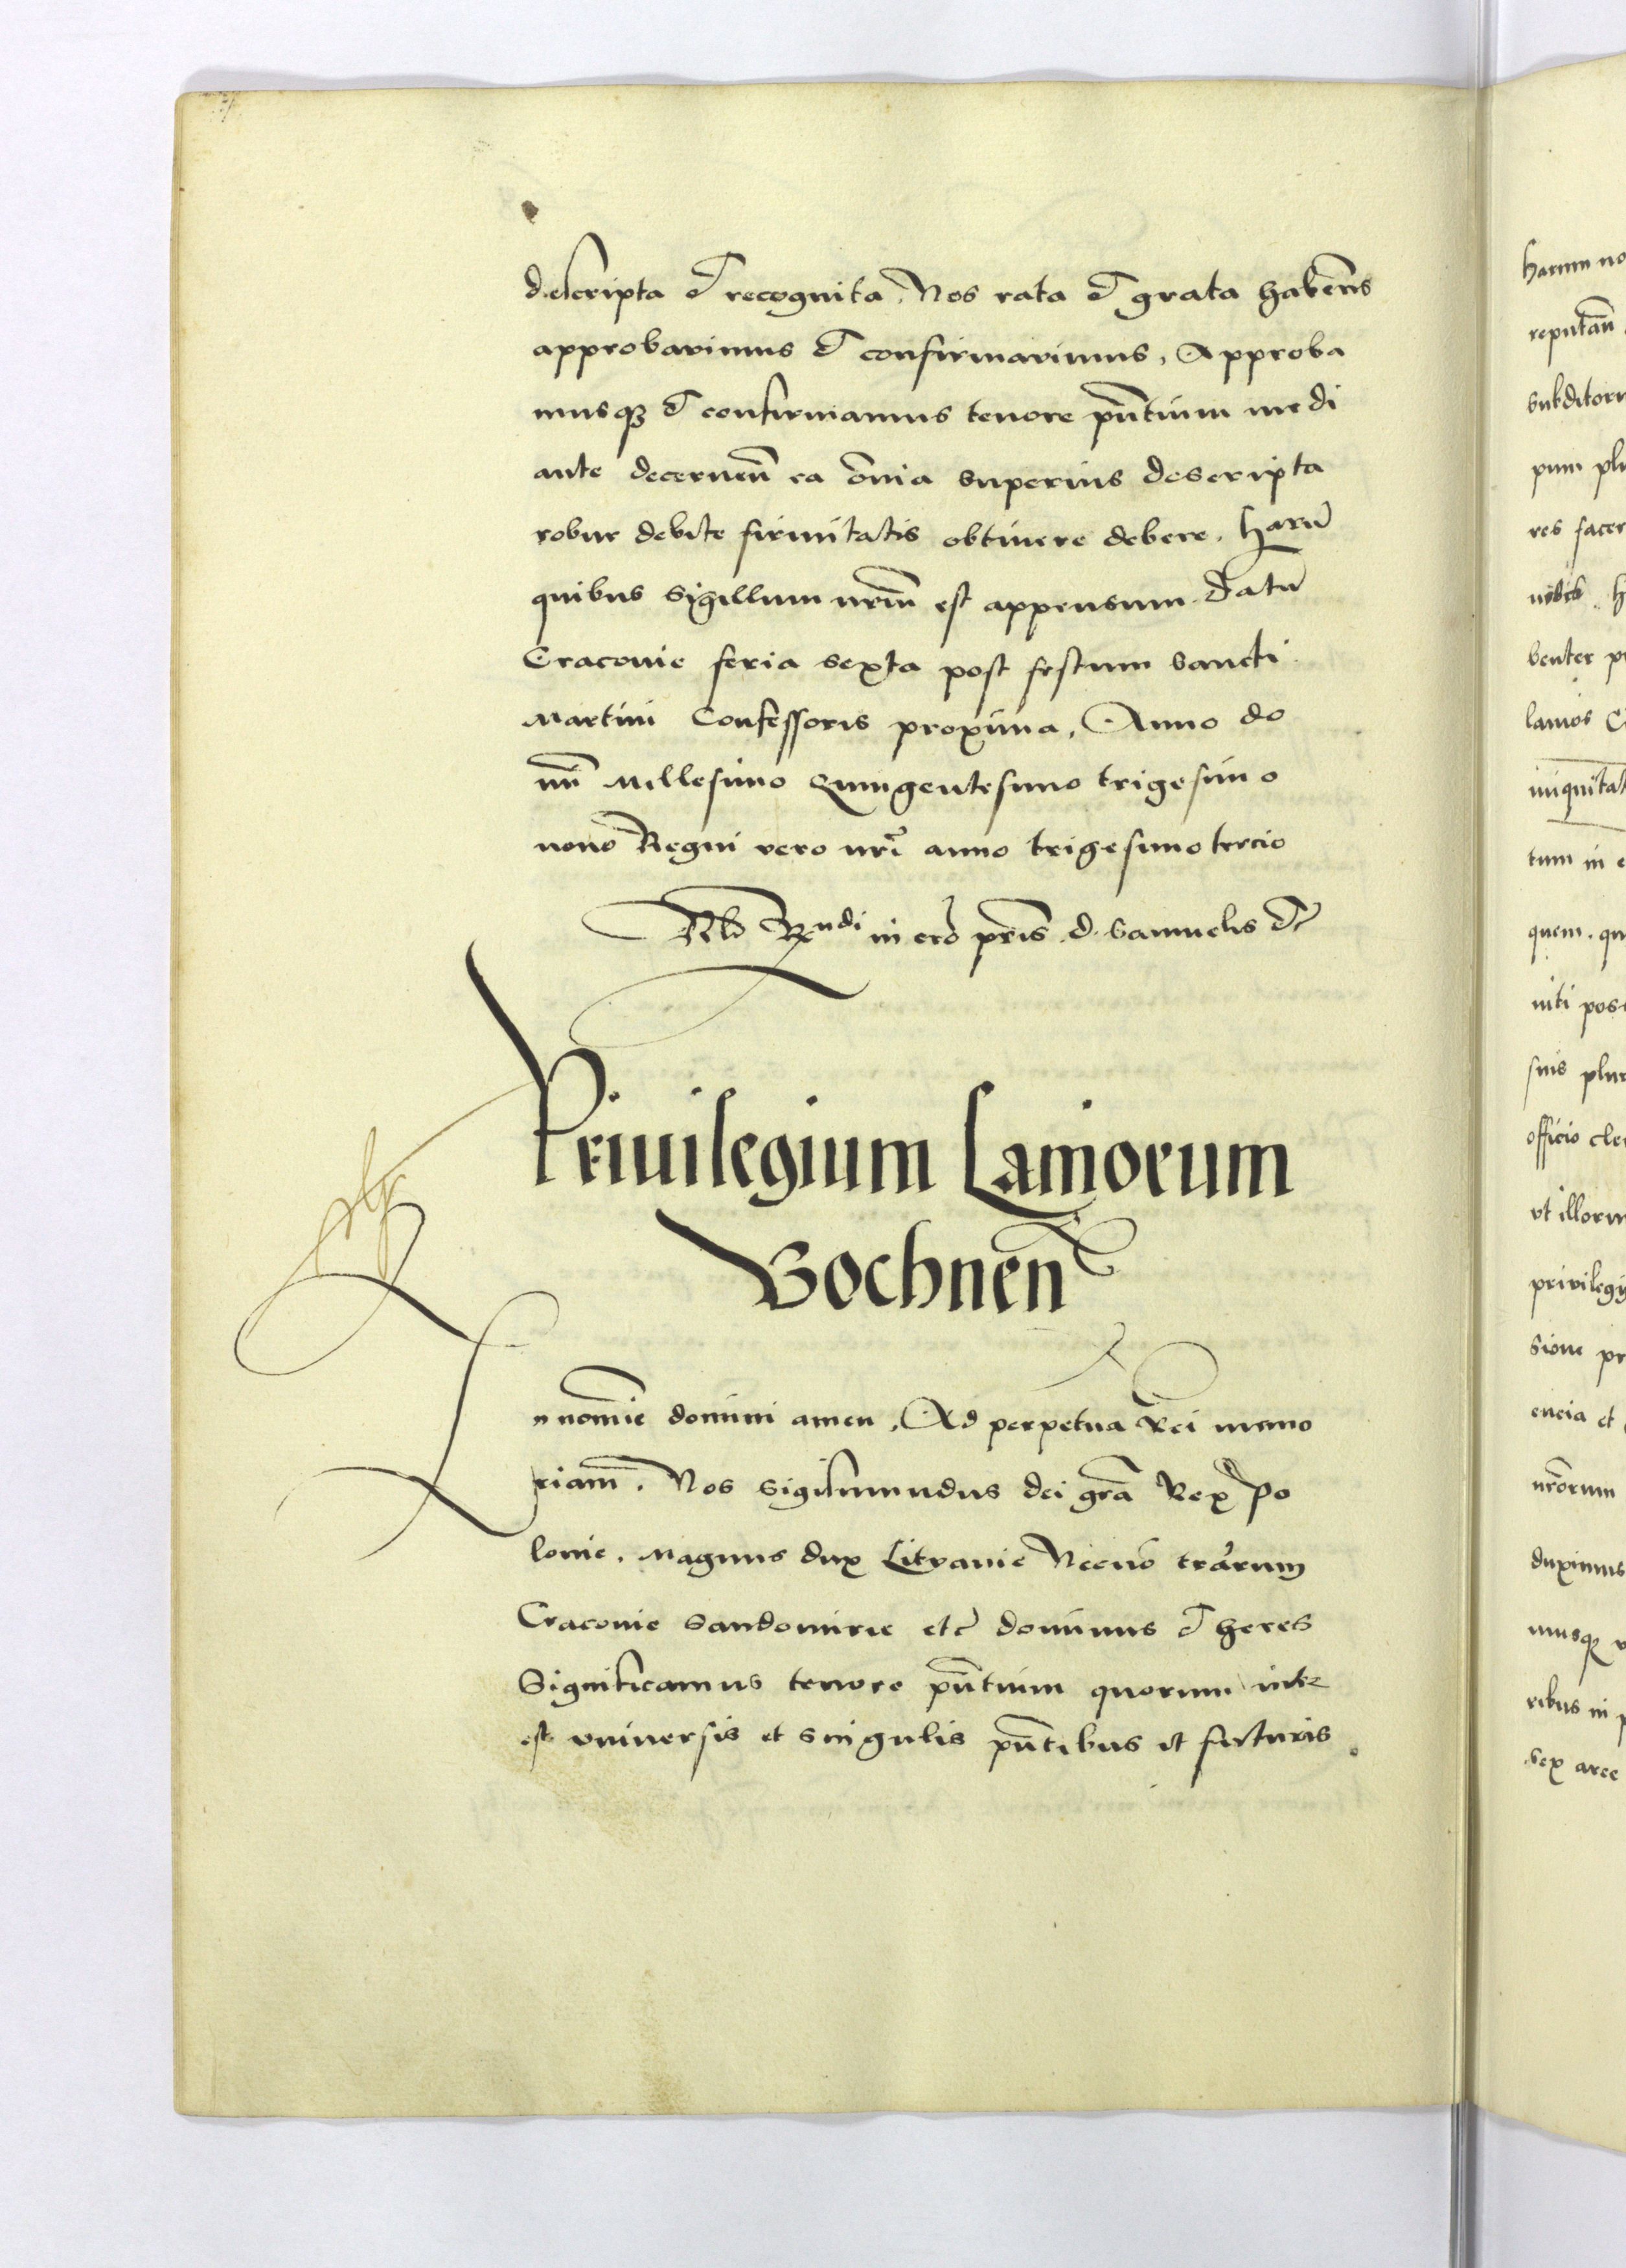 descripta et recognita. Nos rata et grata habeñs
approbavimus et confirmavimus, Approba
musqʒ et confirmamus tenore pñtium medi
ante decerneñ ea õnia superius descripta
robur debite firmitatis obtinere debere. Harũ
quibus sigillum nrũm est appensum. Datũ
Cracovie feria sexta post festum sancti
Martini Confessoris proxima, Anno do
mĩ Millesimo Quingentesimo trigesimo
nono Regni vero nrĩ anno trigesimo tercio
R̃ndi in cr̃o pr̃is d. Samuelis etc̃
Privilegium Laniorum
Bochneñ
In nom̃ie domini amen, Ad perpetua Rei memo
riam̃. Nos Sigismundus dei gr̃a Rex Po
lonie. Magnus dux Litvanie Necnõ trãrum
Cracovie Sandomirie etc̃ dominus et heres
Significamus tenore pñtium quorum inter
est universis et singulis pñtibus et futuris.
harum no
reputañ
subditoru
pum plu
res facer
nobis h
benter p
lanios C
iniquitat
tum in e
quem. qu
niti pos
suis plur
officio cle
ut illorum
privilegij
sione pr
encia et
nrõrum
duximus
musqʒ v
ribus in p
sex arce